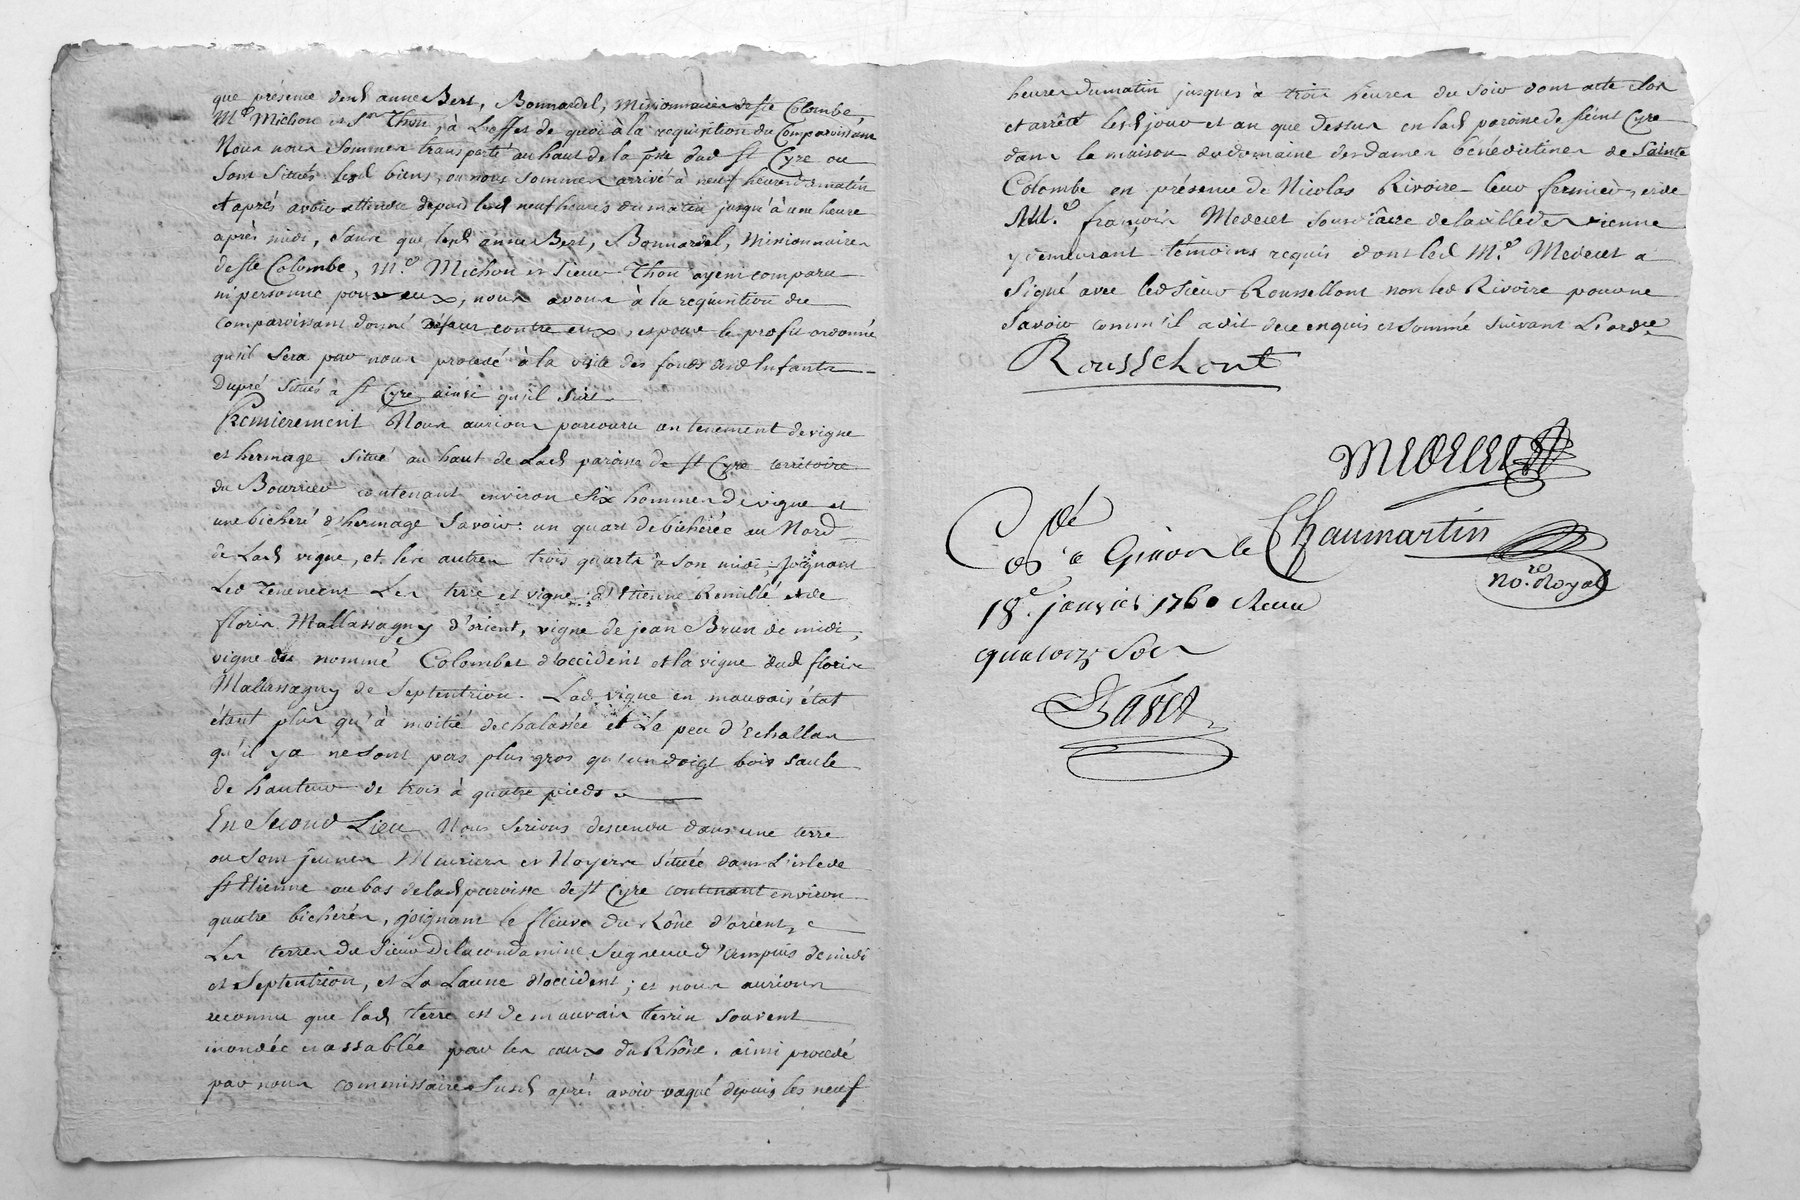 que présence desd anne Bert, Bonnardel, Missionnaires de ste Colombe
Me Michon et Sr Thon, à L'effet de quoi à la requisition du Comparoissant
Nous nous sommes transporté au haut de la psse dud St Cyre ou
sont situés lesd biens, ou nous sommes arrivé à neuf heures du matin
et après avoir attendu depuis lesd neuf heures du matin jusqu'à une heure
après midi, sans que lesd anne Bert, Bonnardel, Missionnaires
de ste Colombe, Me Michon et sieur Thon ayent comparu
ni personne pour eux, nous avons à la requisition du
comparoissant donné défaut contre eux, et pour le profit ordonné
qu'il sera par nous procedé à la visite des fonds desd Infants
Dupré situés à st Cyre ainsi qu'il suit
Premierement Nous aurions parcouru un tenement de vigne
et hermage situé au haut de Lad paroisse de st Cyre territoire
du Bourrier contenant environ six hommes de vigne et
une bicheré d'hermage savoir un quart de bicherée au Nord
de Lad vigne, et les autres trois quarts à son midi, joignant
Led Tenement Les terre et vigne d'Etienne Remillé et de
floris Mallassagny d'orient, vigne de jean Brun de midi,
vigne du nommé Colombet d'occident et la vigne dud floris
Mallassagny de septentrion. Lad vigne en mauvais état
étant plus qu'à moitié dechalassée et Le peu d'Echallas
qu'il y a ne sont pas plus gros qu'un doigt bois saule
de hauteur de trois à quatre pieds
En Second Lieu Nous serions descendu dans une terre
ou sont jeunes Muriers et Noyers située dans L'isle de
st Etienne au bas de lad paroisse de st Cyre contenant environ
quatre bicherées, joignant le fleuve du Rône d'orient,
Les terres du sieur De la condamine Seigneur d'ampuis de midi
et septentrion, et La Laune d'occident; et nous aurions
reconnu que lad terre est de mauvais terrin souvent
inondée et assablée par les eaux du Rhône. ainsi procedé
par nous commissaire susd après avoir vaqué depuis les neuf
heures du matin jusques à trois heures du soir dont acte clos
et arrêté lesd jour et an que dessus en lad paroisse de st Cyre
dans la maison du domaine des dames bénédictines de Sainte
Colombe en présence de Nicolas Rivoire leur fermier, et de
Me françois Medecet de la ville de vienne
y demeurant temoins requis dont led Me Medecet a
signé avec led sieur Roussellont non led Rivoire pour ne
savoir comm'il a dit de ce enquis et sommé suivant L'ordce
Roussehont
Medecet
Chaumartin
no.re Royal
C.dé
à Givors le
18e janvier 1760 Receu
quatorze sols